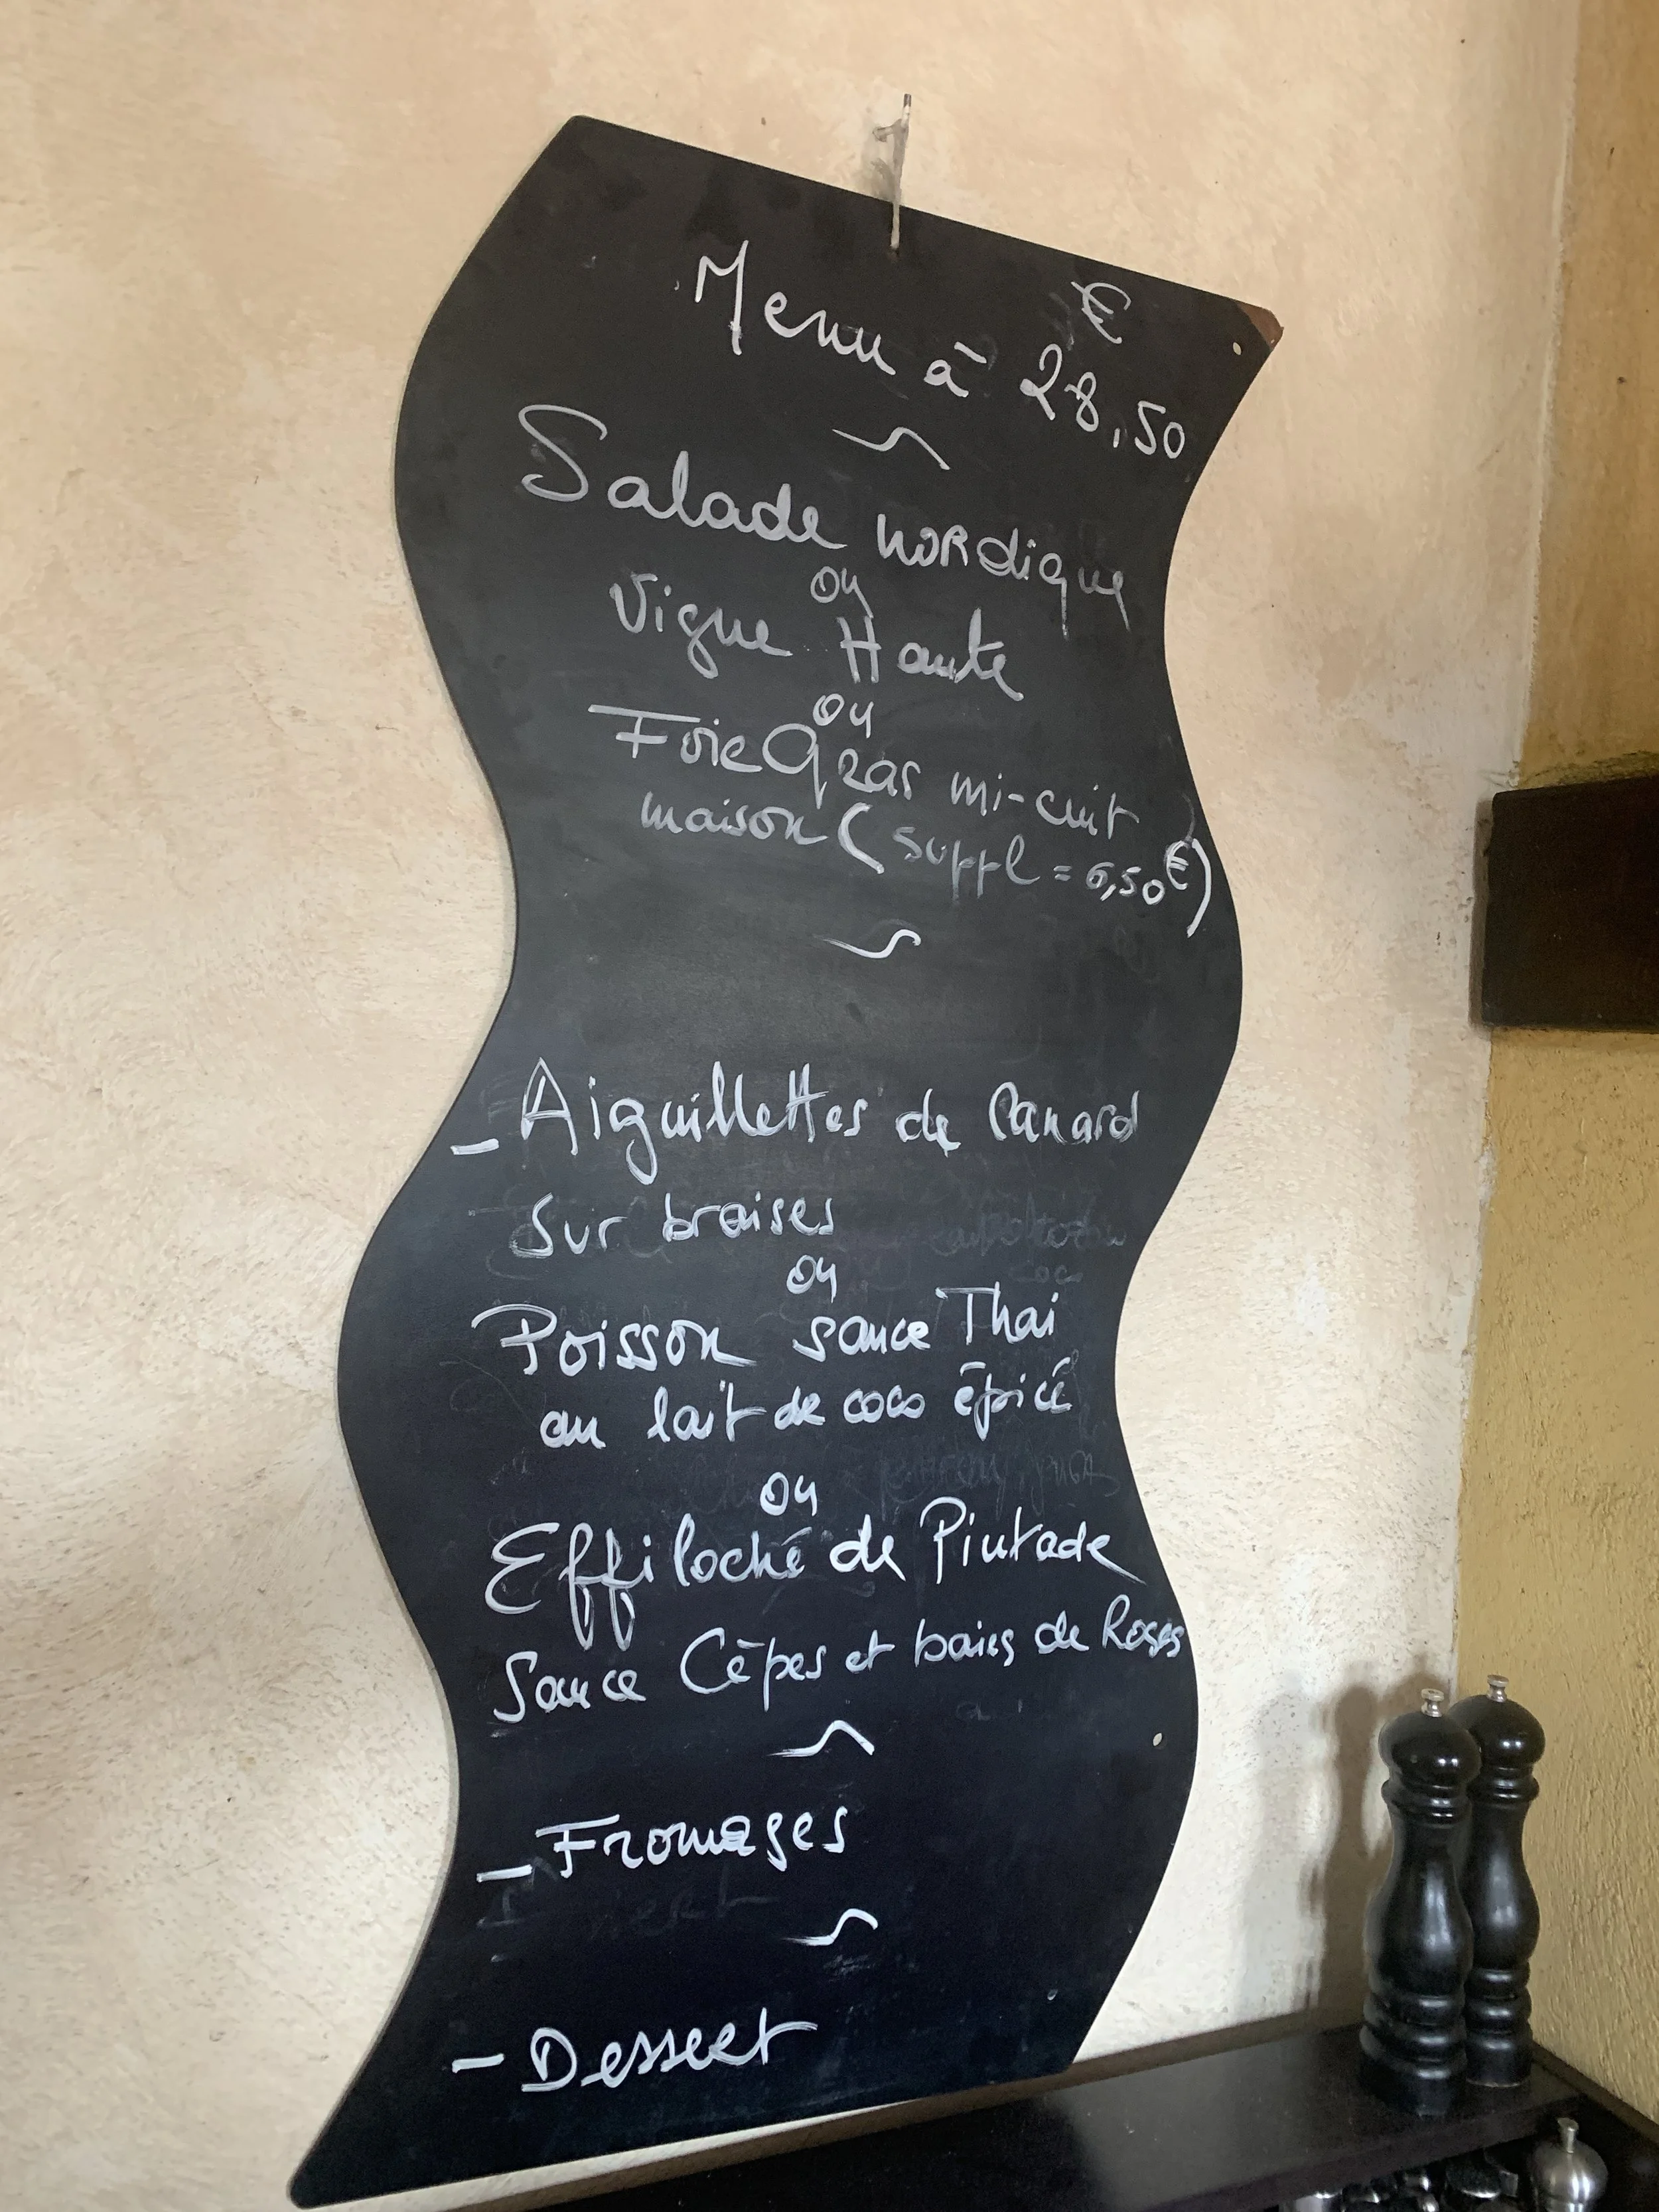 Menu à 28,50 €
Salade nordique
ou
Vigne Haute
ou
Foie Gras mi-cuit
maison (suppl = 6,50€)
- Aiguillettes de Canard
sur braises
ou
Poisson sauce Thaï
au lait de coco épicé
ou
Effiloché de Pintade
Sauce Cêpes et baies de Roses
- Fromages
- Dessert